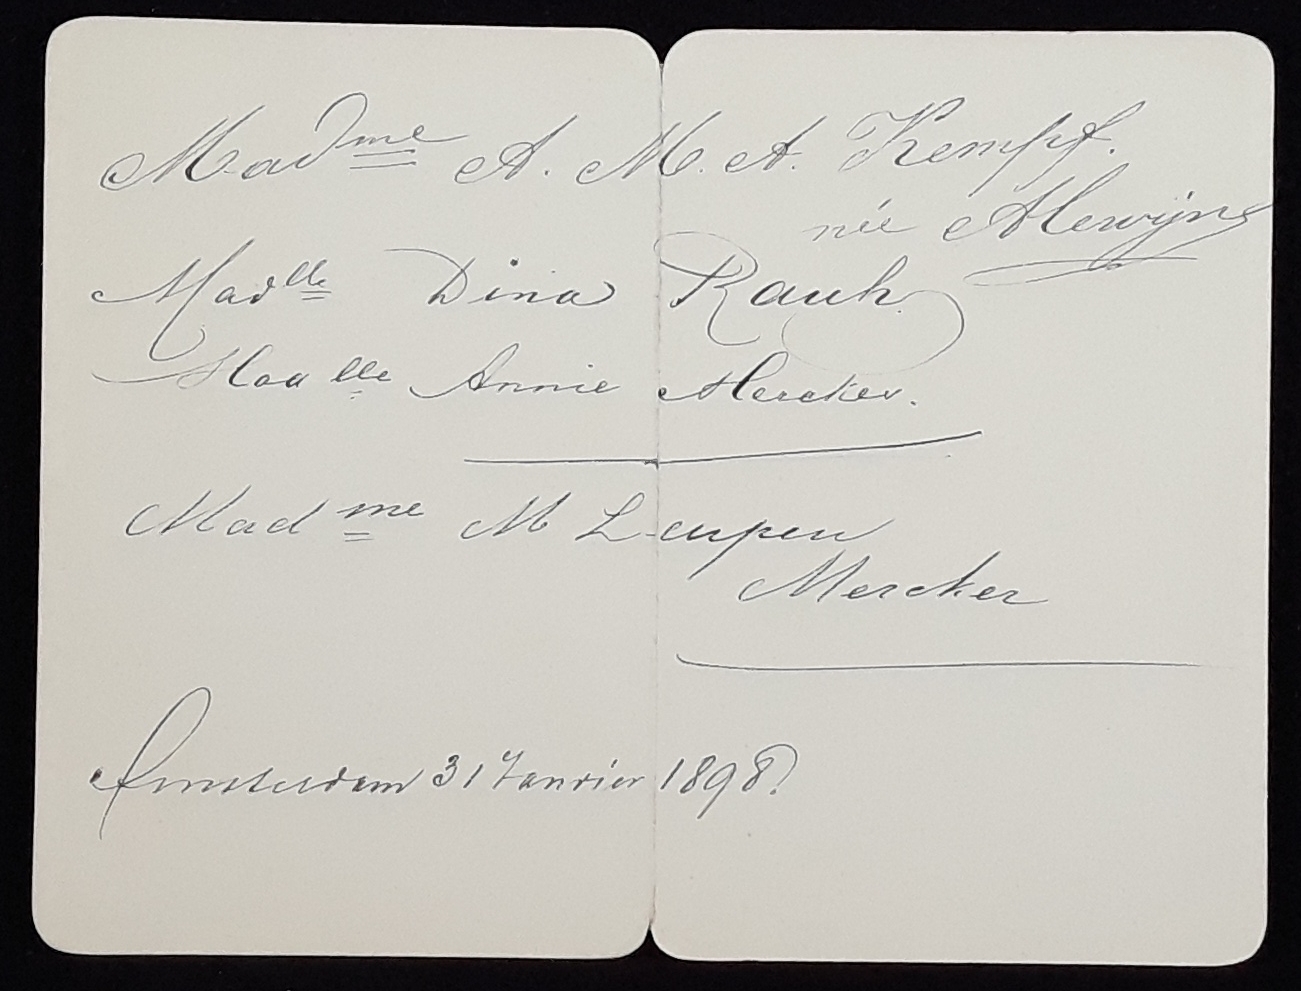 Mad^me A. M. A. Kempf.
née Alewijns
Mad^lle Dina Rauh.
Mad^lle Annie Mercker.
Mad^me M Leupen
Mercker
Amsterdam 31 Janvier 1898.